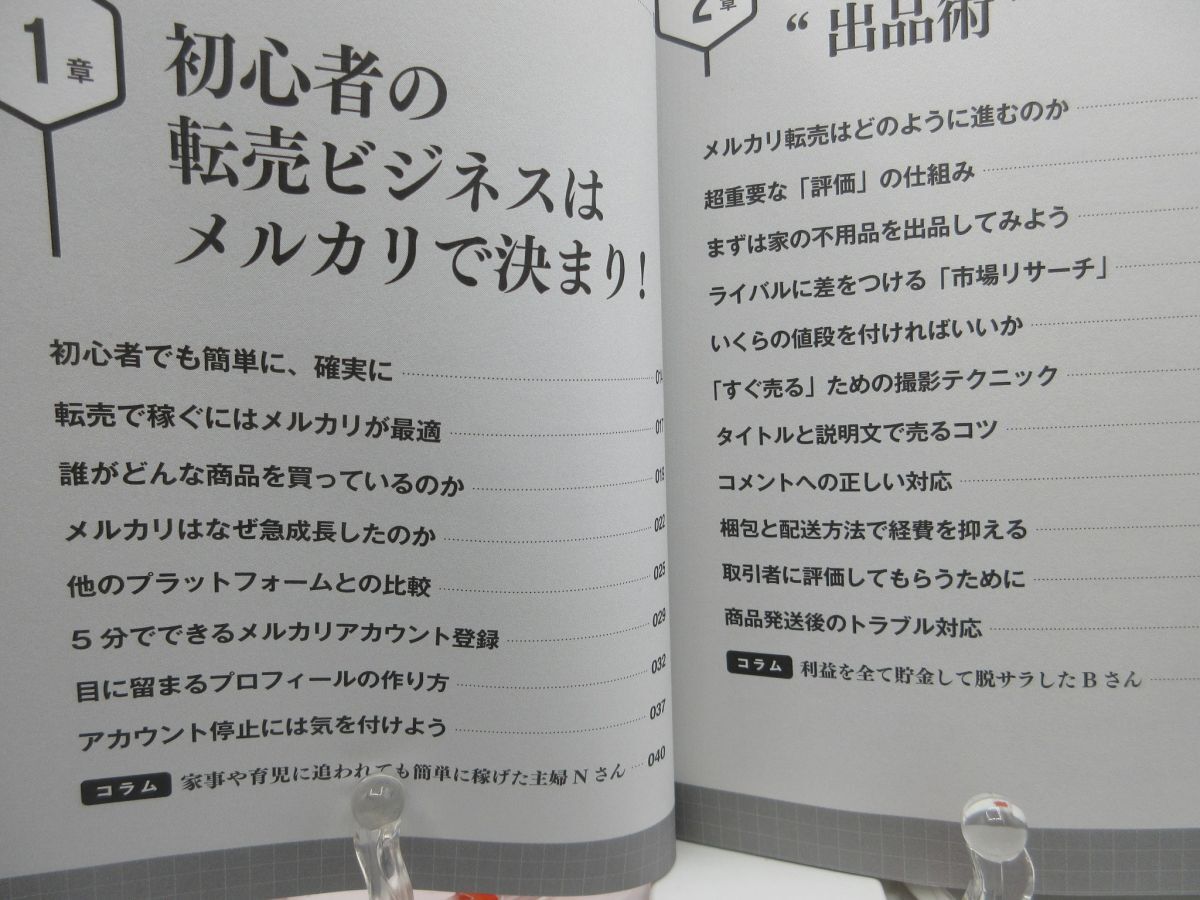 1章
初心者の
転売ビジネスは
メルカリで決まり!
初心者でも簡単に、確実に
転売で稼ぐにはメルカリが最適 017
誰がどんな商品を買っているのか 019
メルカリはなぜ急成長したのか 022
他のプラットフォームとの比較 025
5分でできるメルカリアカウント登録 029
目に留まるプロフィールの作り方 032
アカウント停止には気を付けよう 037
コラム 家事や育児に追われても簡単に稼げた主婦Nさん 040
2章
“出品術
メルカリ転売はどのように進むのか
超重要な「評価」の仕組み
まずは家の不用品を出品してみよう
ライバルに差をつける「市場リサーチ」
いくらの値段を付ければいいか
「すぐ売る」ための撮影テクニック
タイトルと説明文で売るコツ
コメントへの正しい対応
梱包と配送方法で経費を抑える
取引者に評価してもらうために
商品発送後のトラブル対応
コラム 利益を全て貯金して脱サラしたBさん